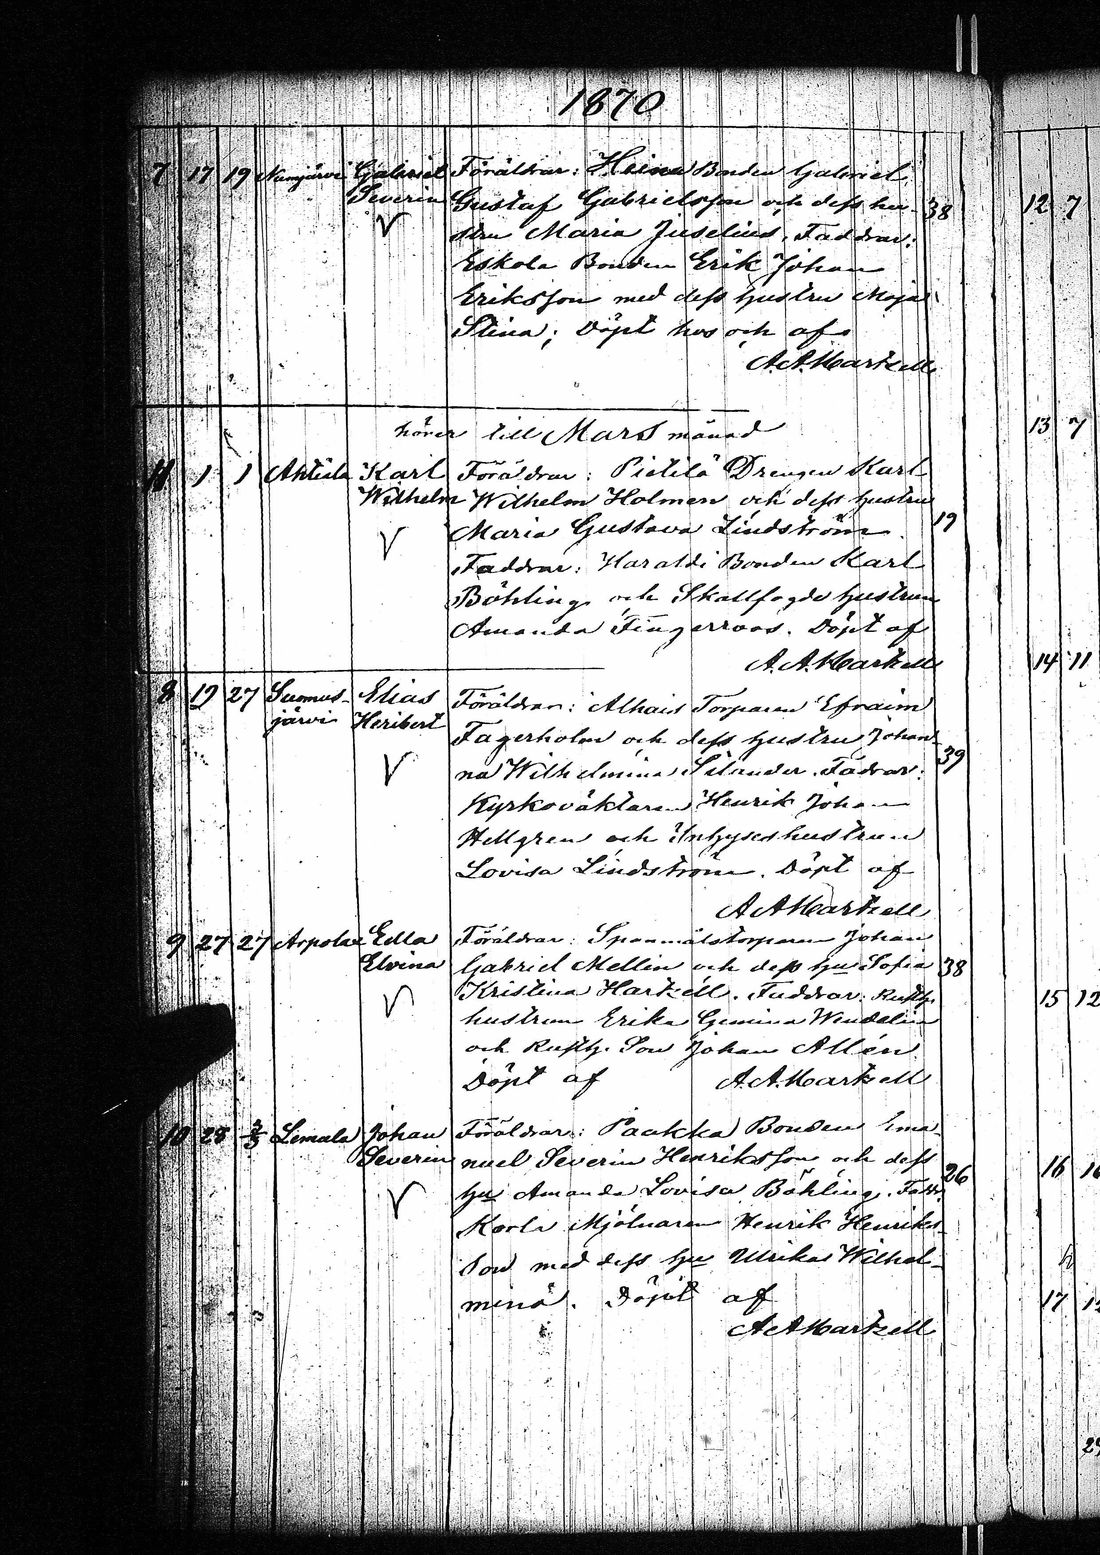 1870
7 17 19 Numjärvi Gabriel Föräldrar: Heina Bonden Gabriel
Severin Gustaf Gabrielsson och dess hu- 38
stru Maria Juselius. Faddrar:
Eskola Bonden Erik Johan
Eriksson med dess hustru Maja
Stina; Döpt hos och af
A.A. Hartzell
hörer till Mars månad
11 1 1 Ahtila Karl Föräldrar: Pietilä Drengen Karl
Wilhelm Wilhelm Holmen och dess hustru
Maria Gustava Lindström. 19
Faddrar: Haraldi Bonden Karl
Böhling och Skallfogde hustrun
Amanda Fingerroos. Döpt af
A.A. Hartzell
8 19 27 Suomus- Elias Föräldrar: Alhais Torparen Efraim
järvi Heribert Fagerholm och dess hustru Johan-
na Wilhelmina Silander. Fadrar: 39
Kyrkoväktaren Henrik Johan
Hellgren och Inhyseshustrun
Lovisa Lindström. Döpt af
A A Hartzell
9 27 27 Arpola Edla Föräldrar: Spanmålstorparen Johan
Elvina Gabriel Mellin och dess hu Sofia 38
Kristina Hartzell. Faddrar: Rusth.
hustrun Erika Gemina Wendelin
och Rusth. Son Johan Allén
Döpt af A.A. Hartzell
10 28 3/3 Lemula Johan Föräldrar: Paakka Bonden Ema-
Severin nuel Severin Henriksson och dess
hu Amanda Lovisa Böhling. Fadd. 26
Karla Mjölnaren Henrik Henriks-
son med dess hu Ulrika Wilhel-
mina. Döpt af
A A Hartzell
12 7
13 7
14 11
15 12
16 16
17